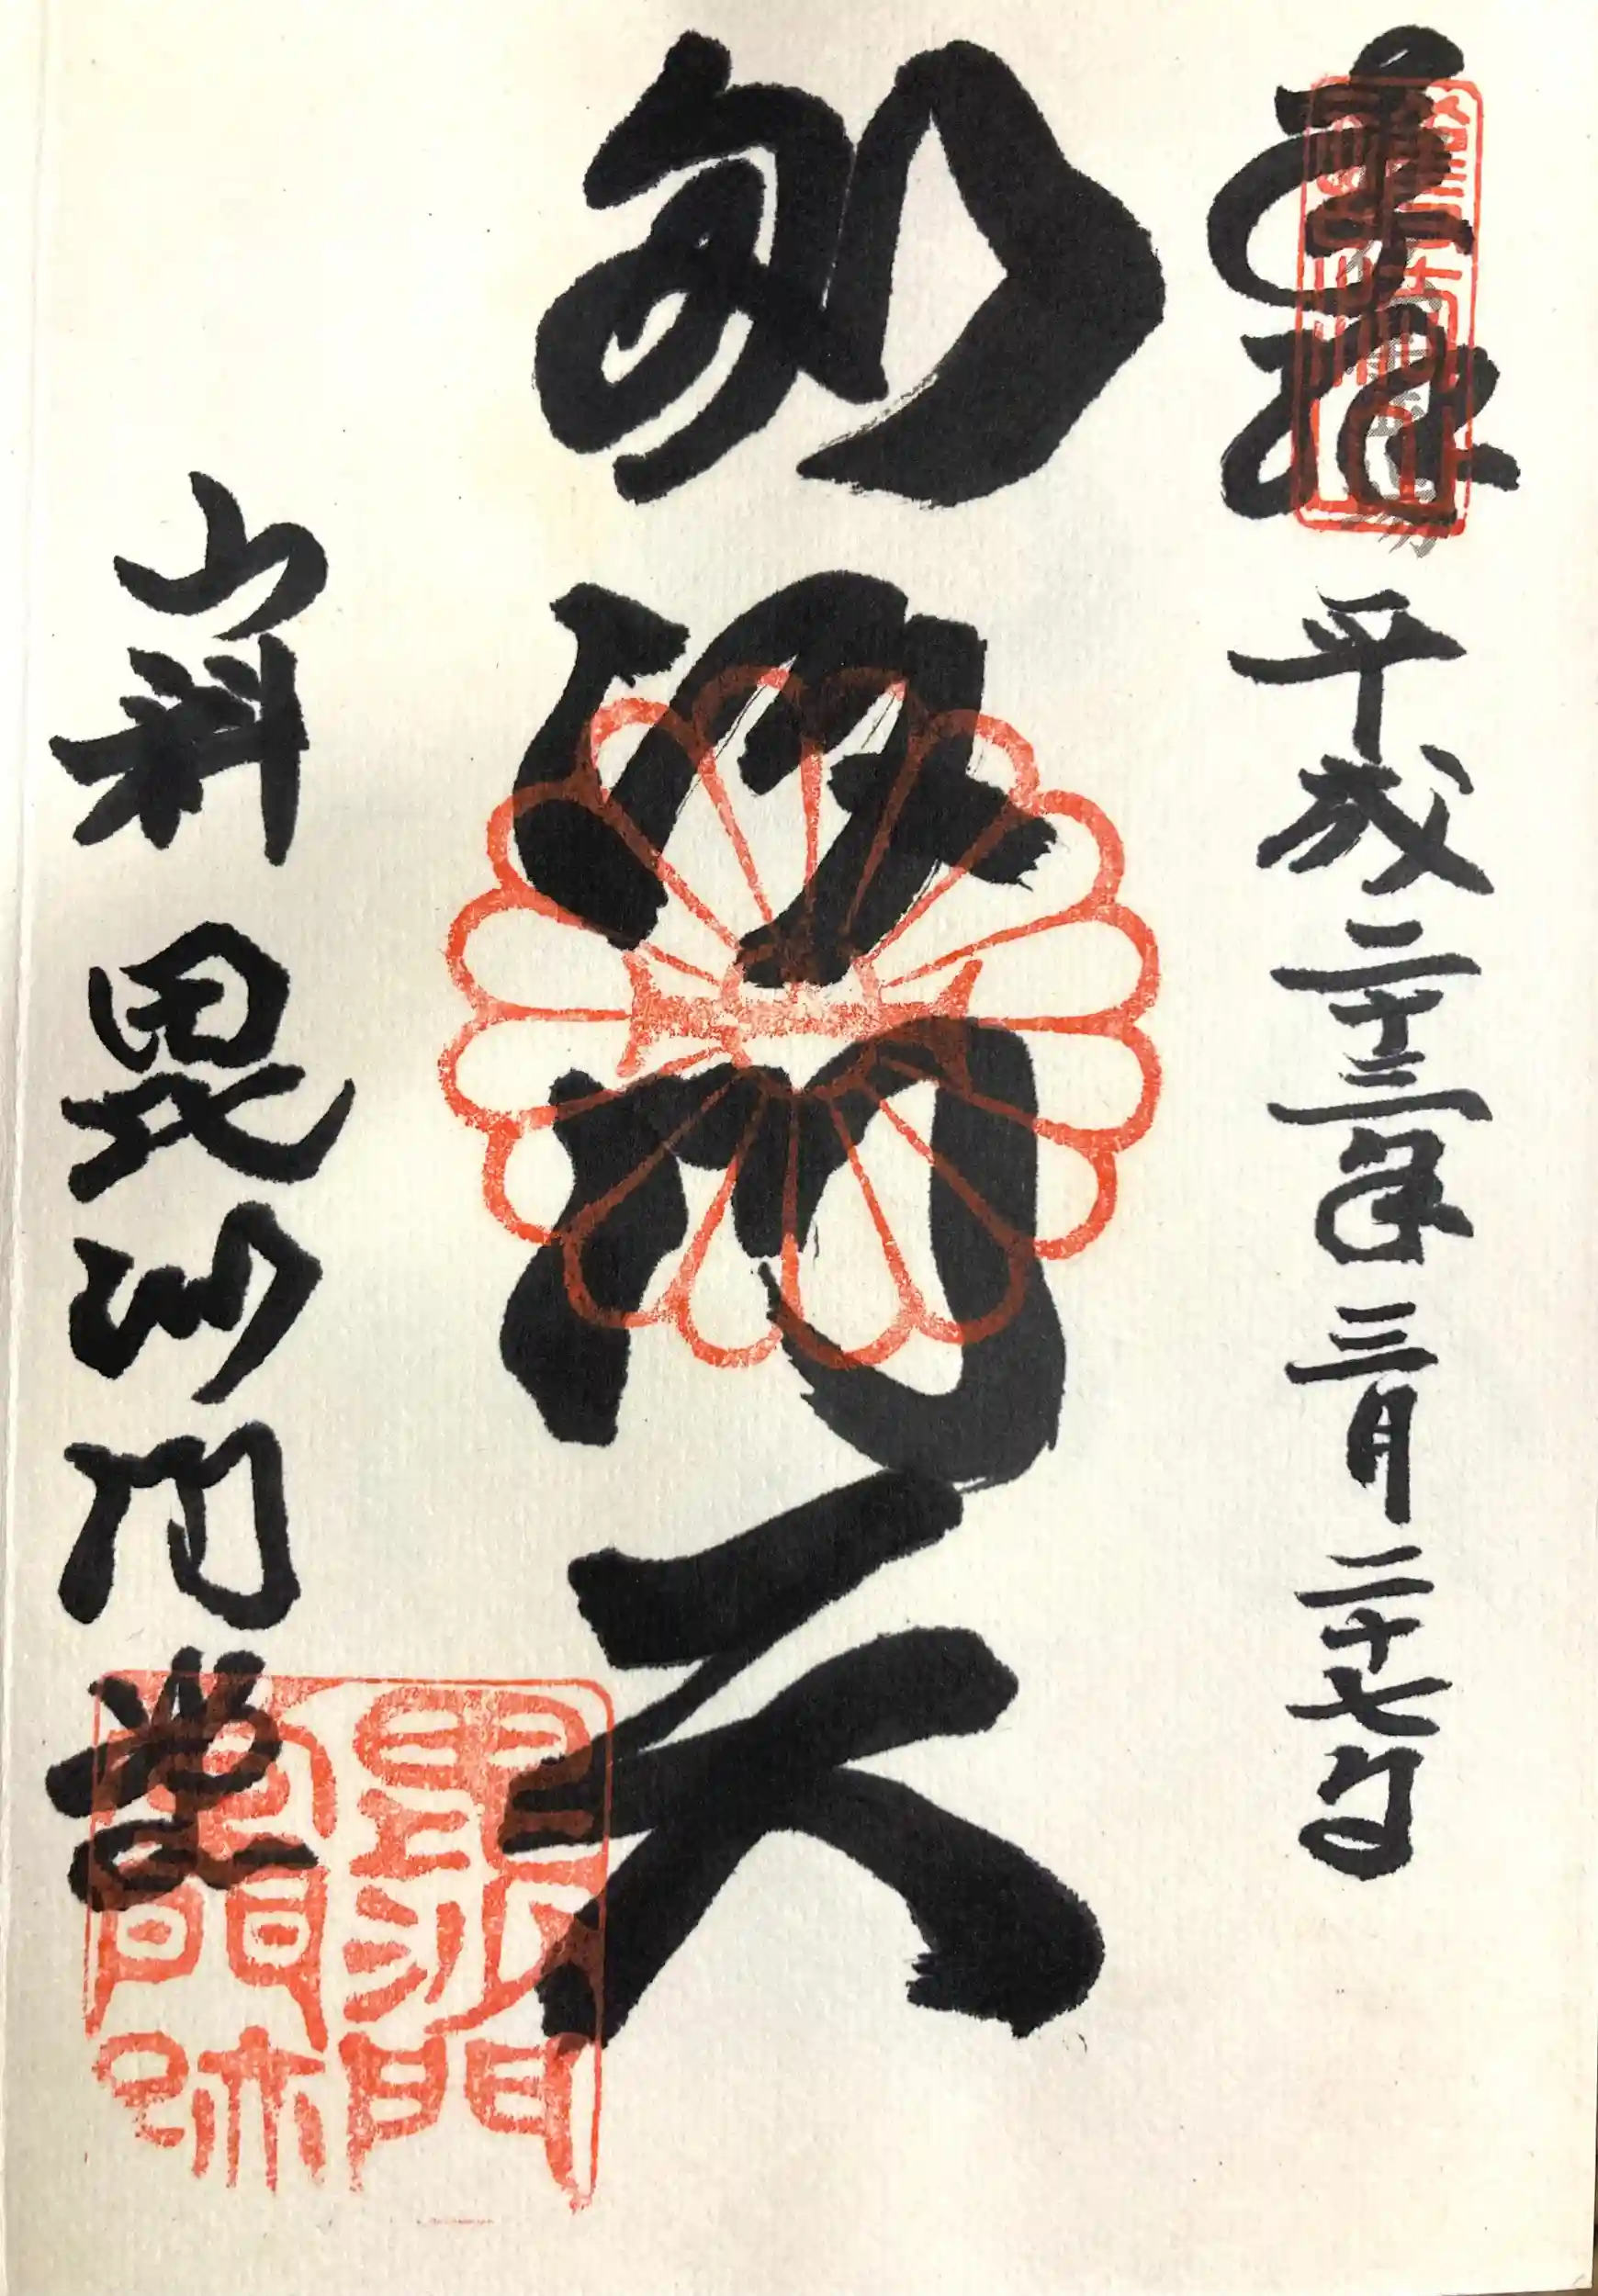 奉拝 平成二十三年三月二十七日
毘沙門天
山科 毘沙門堂
毘沙門
堂門跡